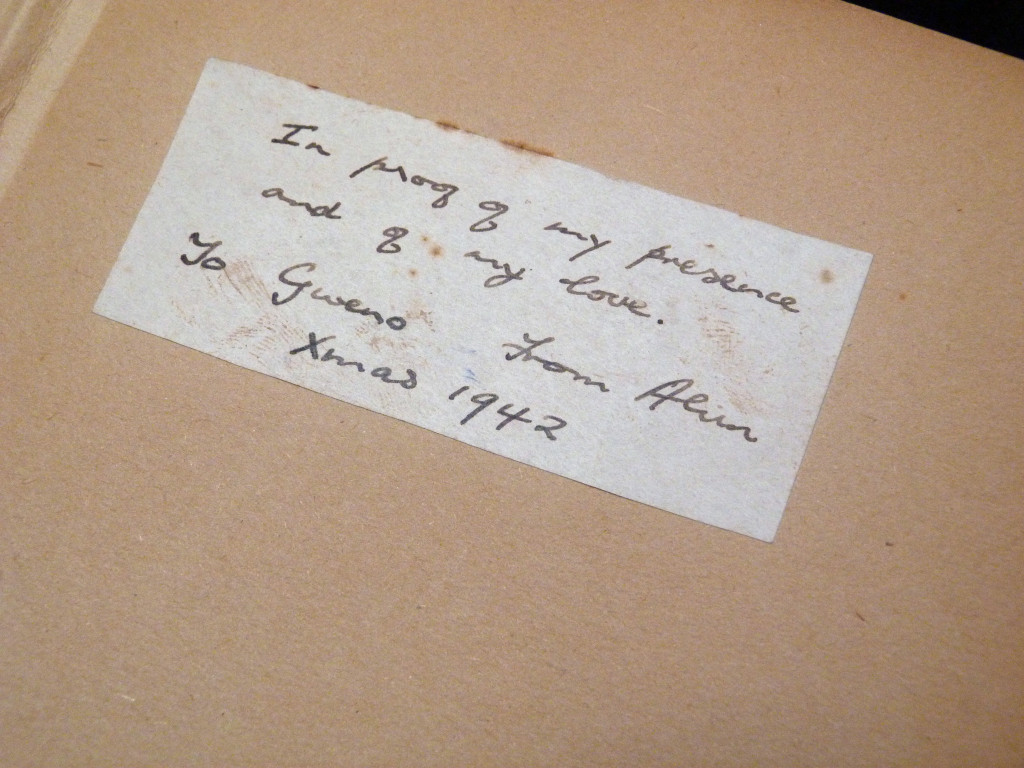 In proof of my presence
and of my love.
To Gweno From Alun
Xmas 1942